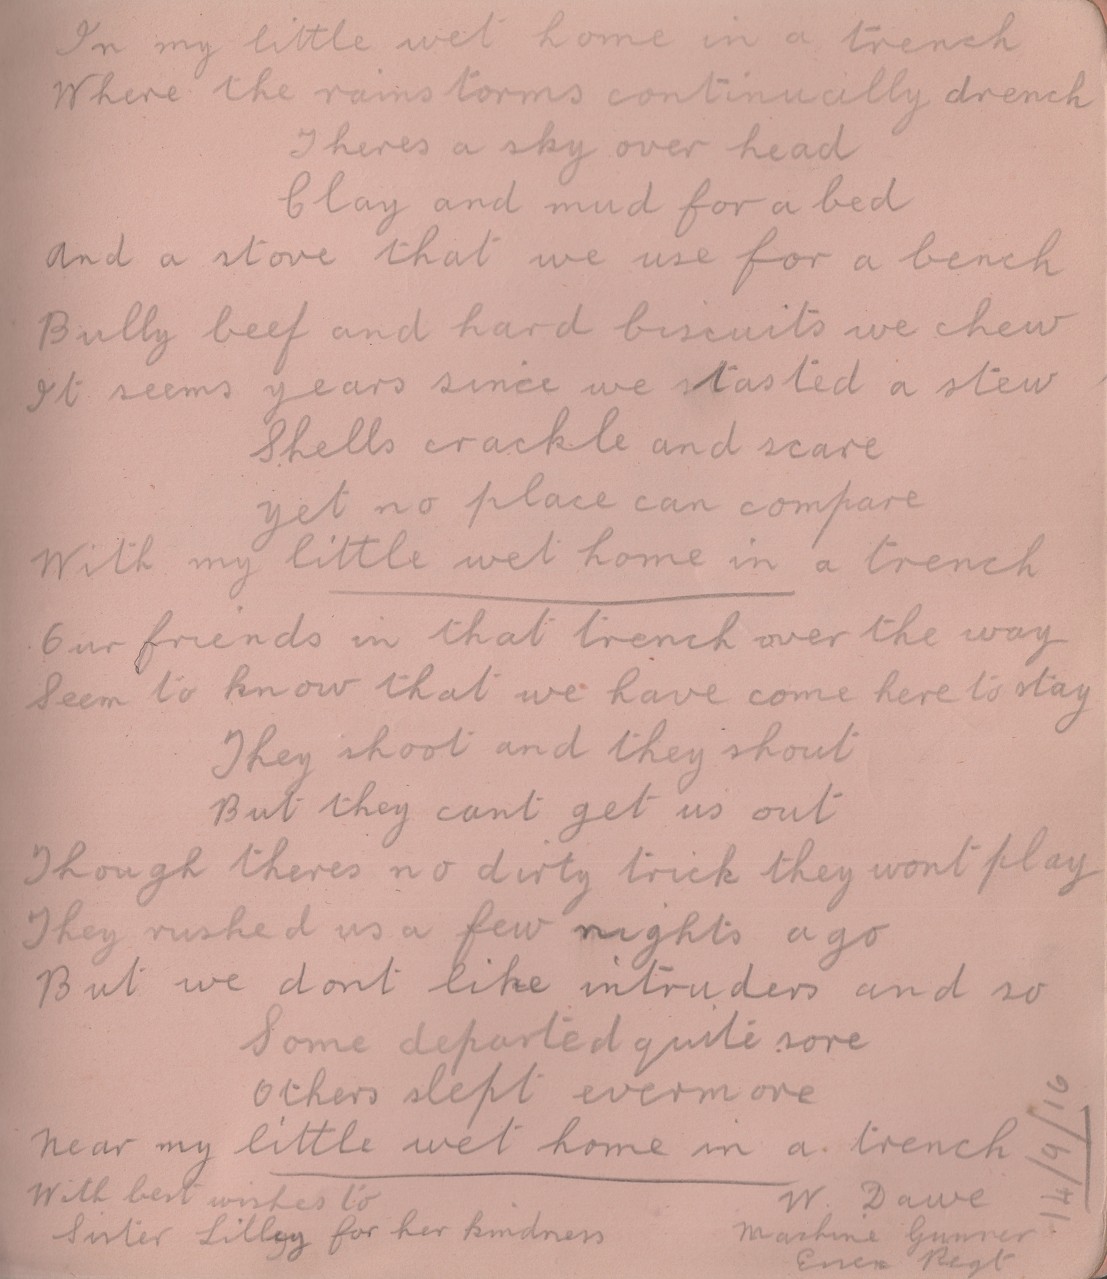 In my little wet home in a trench
Where the rainstorms continually drench
Theres a sky over head
Clay and mud for a bed
And a stove that we use for a bench
Bully beef and hard biscuits we chew
It seems years since we tasted a stew
Shells crackle and scare
yet no place can compare
With my little wet home in a trench
Our friends in that trench over the way
Seem to know that we have come here to stay
They shoot and they shout
But they cant get us out
Though theres no dirty trick they wont play
They rushed us a few nights ago
But we dont like intruders and so
Some departed quite sore
Others slept evermore
Near my little wet home in a. trench
With best wishes to
Sister Lilley for her kindness
W. Dawe
Machine Gunner
Essex Regt
14/9/16